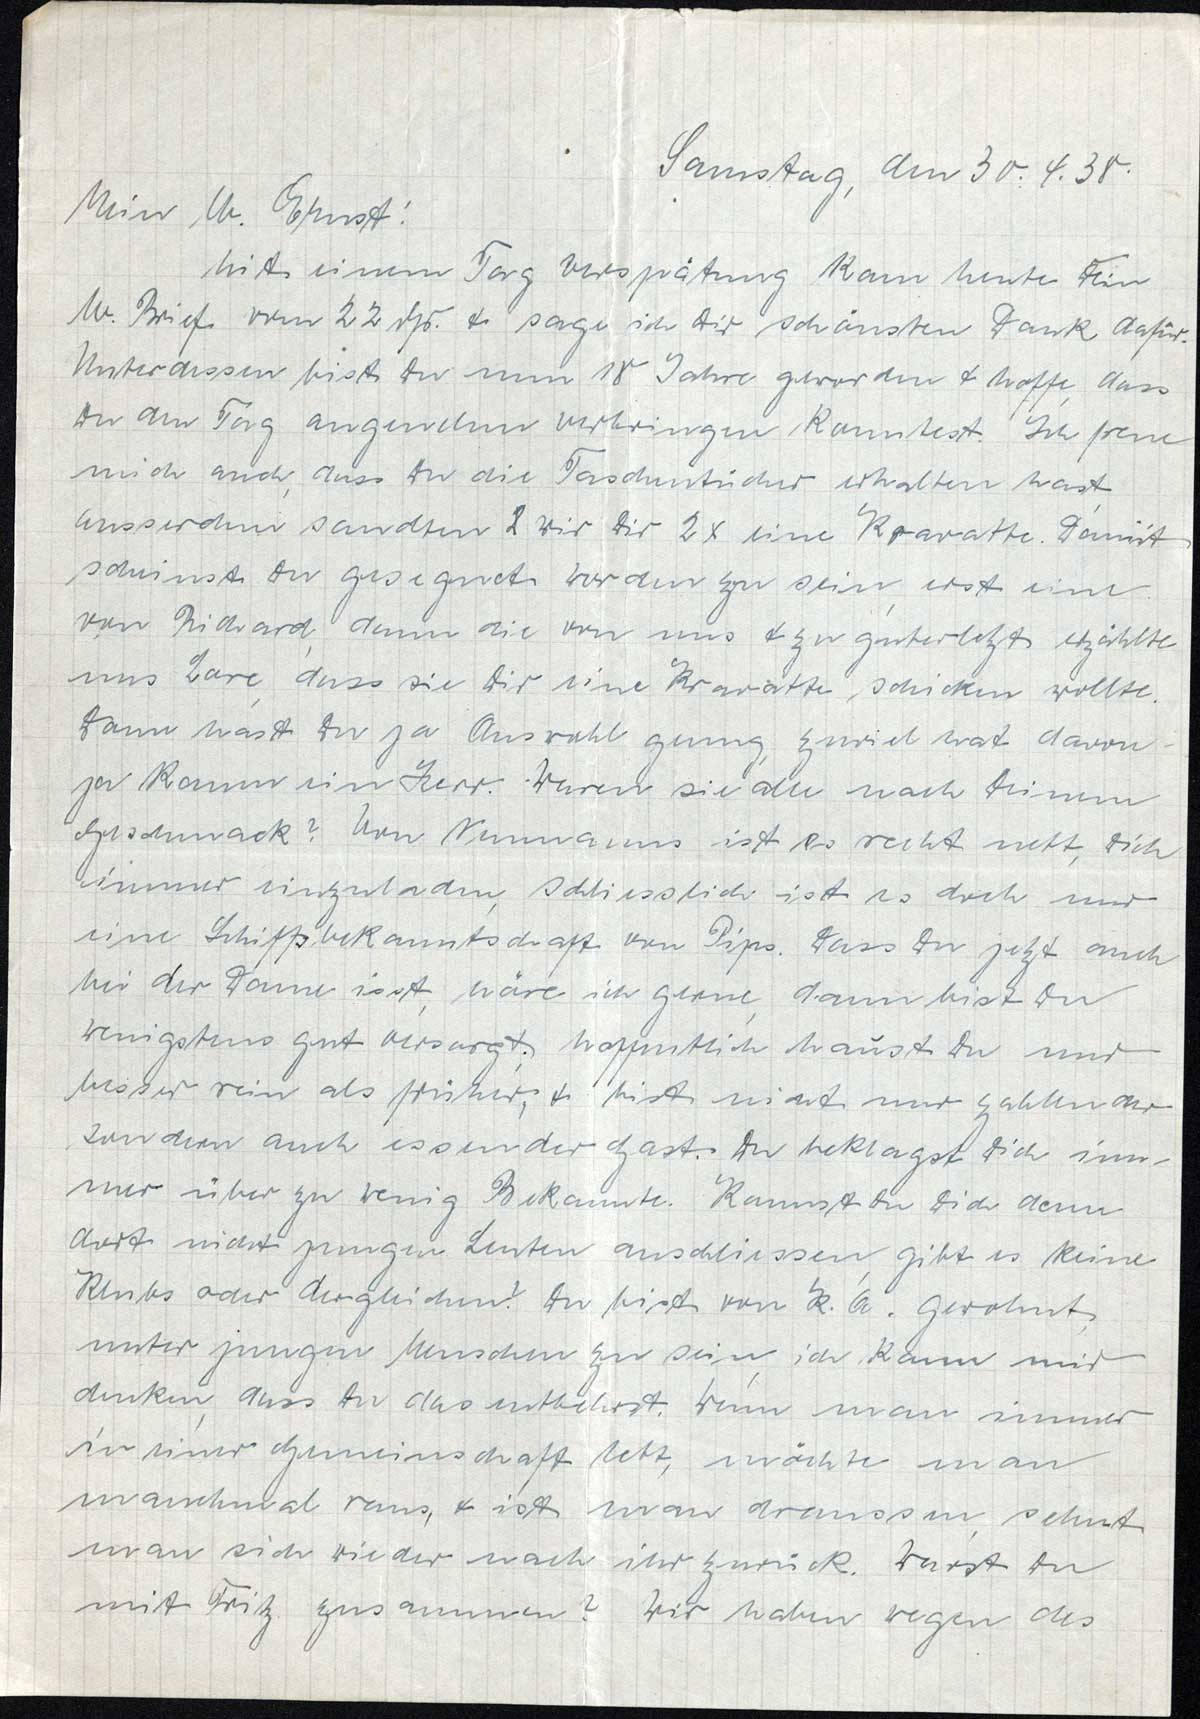 Samstag, den 30.4.38.
Mein lb. Ernst!
Mit einem Tag Verspätung kam heute Dein
lb. Brief vom 22 ds. & sage ich Dir schönsten Dank dafür.
Unterdessen bist Du nun 18 Jahre geworden & hoffe, dass
Du den Tag angenehm verbringen konntest. Ich freue
mich auch, dass Du die Taschentücher erhalten hast
ausserdem sandten wir Dir 2x eine Kravatte. Damit
scheinst Du gesegnet worden zu sein, erst eine
von Richard, dann die von uns & zu guterletzt erzählte
uns Lore, dass sie Dir eine Kravatte schicken wollte.
Dann hast Du ja Auswahl genug, zuviel hat davon
ja kaum ein Herr. Waren sie alle nach Deinem
Geschmack? Von Neumanns ist es recht nett, Dich
immer einzuladen, schliesslich ist es doch nur
eine Schiffsbekanntschaft von Pips. Dass Du jetzt auch
bei der Dame isst, höre ich gerne, dann bist Du
wenigstens gut versorgt. Hoffentlich haust Du nur
besser rein als früher, & bist nicht nur zahlender
sondern auch essender Gast. Du beklagst Dich im-
mer über zu wenig Bekannte. Kannst Du Dich denn
dort nicht jungen Leuten anschliessen, gibt es keine
Klubs oder dergleichen? Du bist von K. A. gewohnt,
unter jungen Menschen zu sein, ich kann mir
denken, dass Du das entbehrst. Wenn man immer
in einer Gemeinschaft lebt, möchte man
manchmal raus, & ist man draussen, sehnt
man sich wieder nach ihr zurück. Warst Du
mit Fritz zusammen? Wir haben wegen des